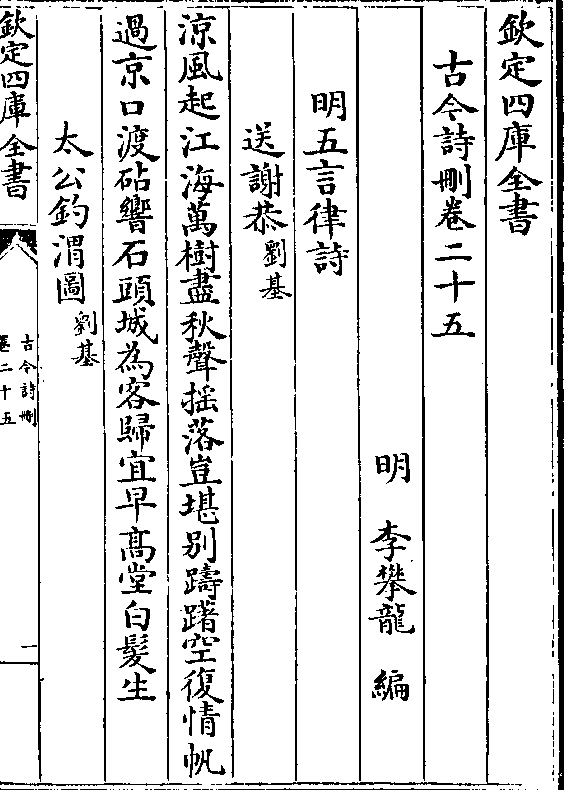 欽定四庫全書
古今詩刪卷二十五
明 李攀龍 編
明五言律詩
送謝恭劉基
涼風起江海萬樹盡秋聲揺落豈堪别躊躇空復情帆
過京口渡砧響石頭城為客歸宜早髙堂白髪生
太公釣渭圖劉基
欽定四庫全書
古今詩刪
卷二十五
一